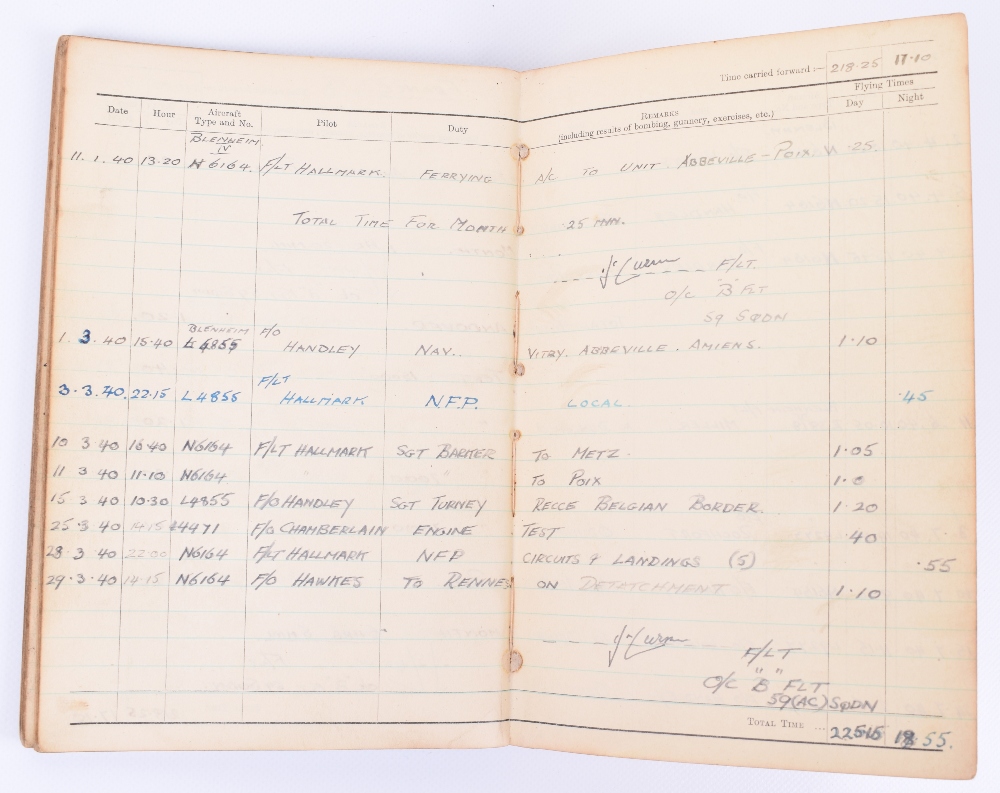 Time carried forward :— 218·25 17·10
Flying Times
Date Hour Aircraft Type and No. Pilot Duty Remarks (including results of bombing, gunnery, exercises, etc.) Day Night
BLENHEIM IV
11. 1. 40 13·20 N6164. F/LT HALLMARK. FERRYING A/C TO UNIT ABBEVILLE – POIX ·25.
TOTAL TIME FOR MONTH 25 MIN.
F/LT.
O/C "B" FLT
59 SQDN
BLENHEIM
1. 3. 40 15·40 L4855 F/O HANDLEY NAV.. VITRY. ABBEVILLE. AMIENS. 1·10
3·3·40. 22·15 L4855 F/LT HALLMARK N.F.P. LOCAL. ·45
10 3 40 16·40 N6164 F/LT HALLMARK SGT BARKER TO METZ. 1·05
11 3 40 11·10 N6164 " " TO POIX
15 3 40 10·30 L4855 F/O HANDLEY SGT TURNEY RECCE BELGIAN BORDER. 1·20
25·3·40 14·15 L4471 F/O CHAMBERLAIN ENGINE TEST ·40
28·3·40 22·00 N6164 F/LT HALLMARK NFP CIRCUITS & LANDINGS (5) ·55
29·3·40 14·15 N6164 F/O HAWKES TO RENNES ON DETATCHMENT 1·10
F/LT
O/C "B" FLT
59(AC) SQDN
Total Time ... 225·15 18·55.